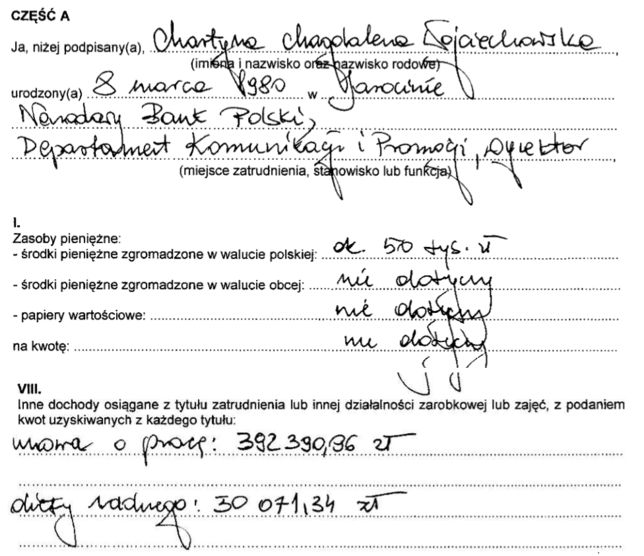 CZĘŚĆ A
Ja, niżej podpisany(a), Martyna Magdalena Wojciechowska,
(imiona i nazwisko oraz nazwisko rodowe)
urodzony(a) 8 marca 1980 w Jarocinie
Narodowy Bank Polski,
Departament Komunikacji i Promocji, Dyrektor
(miejsce zatrudnienia, stanowisko lub funkcja)
I.
Zasoby pieniężne:
- środki pieniężne zgromadzone w walucie polskiej: ok. 50 tys. zł
- środki pieniężne zgromadzone w walucie obcej: nie dotyczy
- papiery wartościowe: nie dotyczy
na kwotę: nie dotyczy
VIII.
Inne dochody osiągane z tytułu zatrudnienia lub innej działalności zarobkowej lub zajęć, z podaniem
kwot uzyskiwanych z każdego tytułu:
umowa o pracę: 392 390,96 zł
diety radnego: 30 071,34 zł